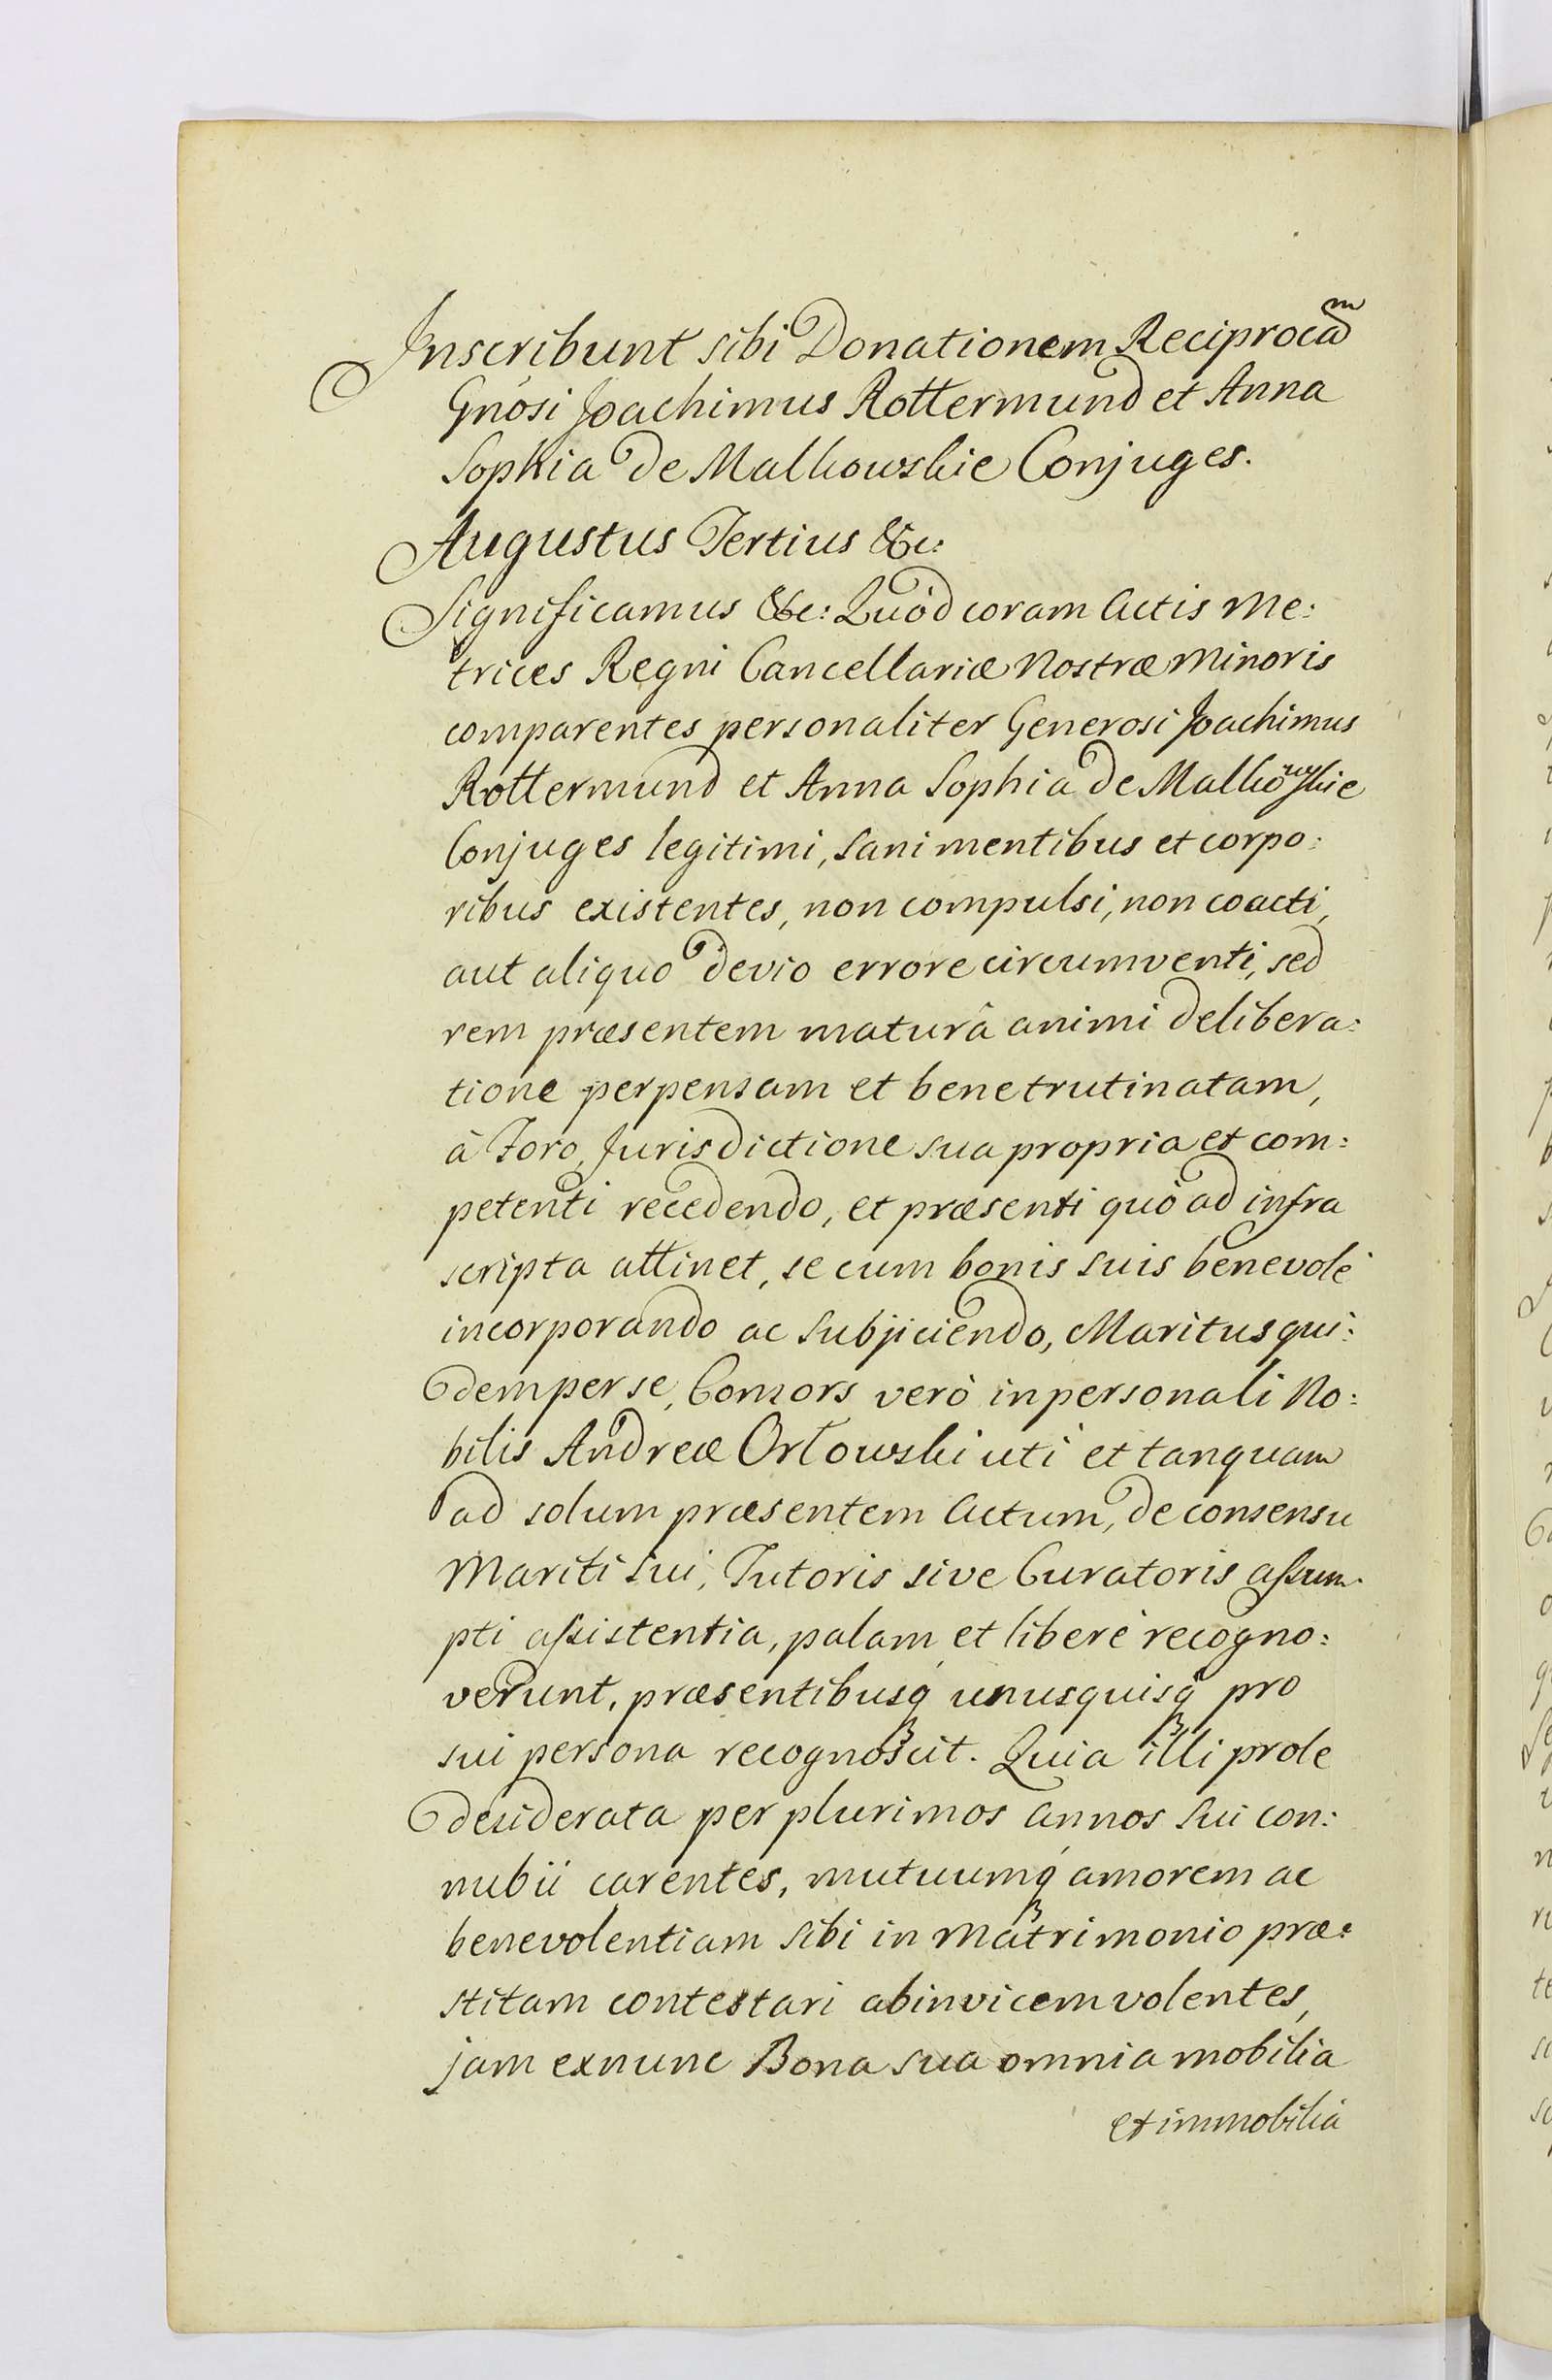 Inscribunt sibi Donationem Reciprocam
Gnosi Joachimus Rottermund et Anna
Sophia de Malkowskie Conjuges.
Augustus Tertius &c:
Significamus &c: Quòd coram Actis Me:
trices Regni Cancellariæ Nostræ Minoris
comparentes personaliter Generosi Joachimus
Rottermund et Anna Sophia de Malkowskie
Conjuges legitimi, sani mentibus et corpo:
ribus existentes, non compulsi, non coacti,
aut aliquo devio errore circumventi, sed
rem præsentem maturâ animi delibera:
tione perpensam et bene trutinatam,
â Foro, Jurisdictione sua propria et com:
petenti recedendo, et præsenti quò ad infra
scripta attinet, se cum bonis suis benevolè
incorporando ac subjiciendo, Maritus qui:
dem per se, Consors verò in personali No:
bilis Andreæ Orłowski uti et tanquam
ad solum præsentem Actum, de consensu
Mariti sui, Tutoris sive Curatoris assum:
pti assistentia, palam et liberè recogno:
verunt, præsentibusq́ unusquisq́ pro
sui persona recognoscit. Quia illi prole
desiderata per plurimos annos sui con:
nubii carentes, mutuumq́ amorem ac
benevolentiam sibi in Matrimonio præ:
stitam contestari abinvicem volentes,
jam exnunc Bona sua omnia mobilia
et immobilia